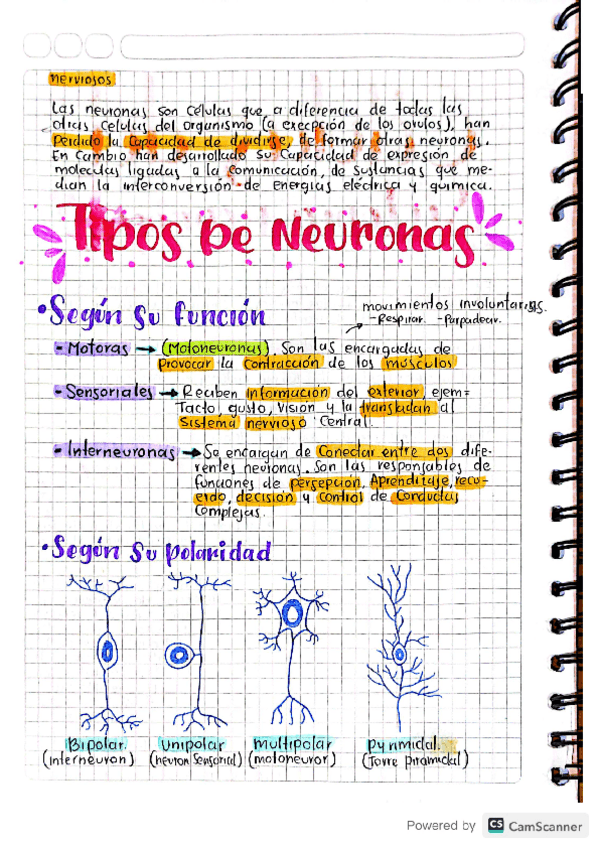 nerviosos
Las neuronas son células que, a diferencia de todas las
otras células del organismo (a exepción de los ovulos), han
Perdido la Capacidad de dividirse, de formar otras neuronas.
En Cambio han desarrollado su Capacidad de expresión de
moleculas ligadas a la comunicación, de sustancias que me-
dian la interconversión de energías eléctrica y química.
Tipos De Neuronas
•Según Su función
movimientos involuntarios.
-Respirar. -Parpadear.
- Motoras → (Motoneuronas). Son las encargadas de
Provocar la Contracción de los músculos
- Sensoriales → Reciben información del exterior, ejem=
Tacto, gusto, Visión y la transladan al
Sistema nervioso Central.
- Interneuronas → Se encargan de Conectar entre dos dife-
rentes neuronas. Son las responsables de
funciones de persepción, Aprendizaje, recu-
erdo, decisión y Control de Conductas
Complejas.
•Según Su polaridad
Bipolar. unipolar multipolar pyrimidal.
(interneuron) (neuron Sensorial) (motoneuror) (Torre piramidal)
Powered by CS CamScanner